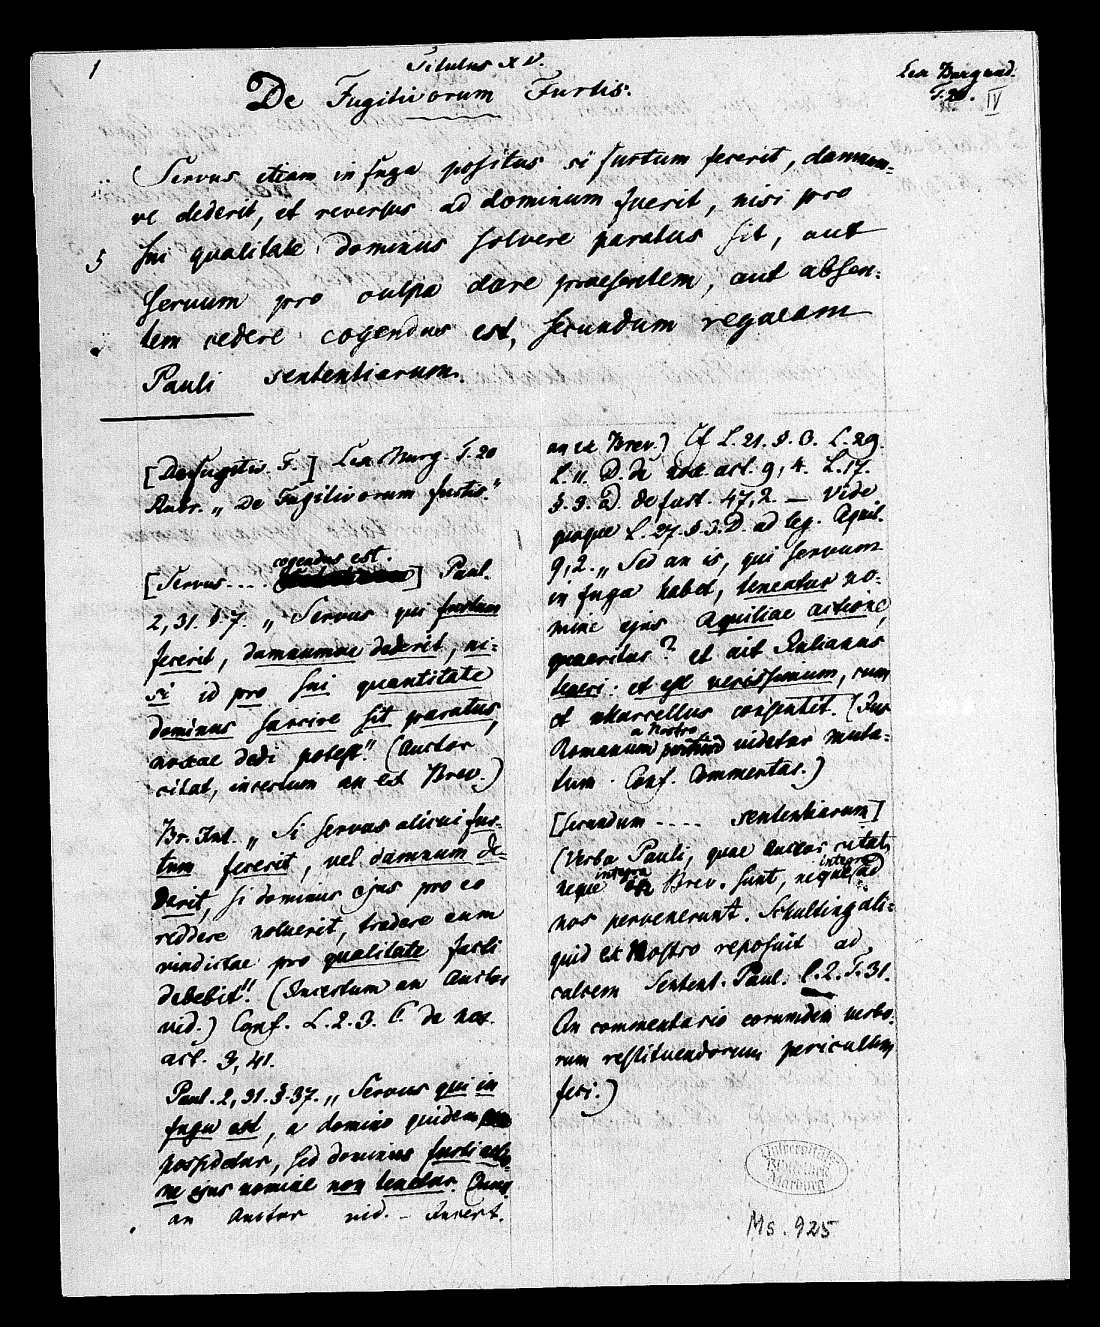 1
Titulus XV.
De Fugitivorum Furtis.
Lex Burgund.
T. 20.
IV
Servus etiam in fuga positus si furtum fecerit, damnum-
ve dederit, et reversus ad dominum fuerit, nisi pro
5 sui qualitate dominus solvere paratus sit, aut
servum pro culpa dare praesentem, aut absen-
tem cedere cogendus est, secundum regulam
Pauli sententiarum.
[De Fugitiv. F.] Lex Burg. T. 20
Rubr. „De Fugitivorum furtis."
cogendus est.
[Servus .... ] Paul.
2, 31. § 7. „Servus qui furtum
fecerit, damnumve dederit, ni-
si id pro sui quantitate
dominus sarcire sit paratus,
noxae dedi potest." (Auctor
citat, incertum an ex Brev.)
Br. Int. „Si servus alicui fur-
tum fecerit, vel damnum de-
derit, si dominus ejus pro eo
reddere noluerit, tradere eum
vindictae pro qualitate facti
debebit". (Incertum an Auctor
vid.) Conf. L. 2. 3. C. de nox.
act. 3, 41.
Paul. 2, 31. § 37. „Servus qui in
fuga est, a domino quidem
possidetur, sed dominus furti actio-
ne ejus nomine non tenetur.
an Auctor vid. - Incert.
an ex Brev.) Cf L. 21. § 3. L. 29.
L. 11. D. de nox. act. 9, 4. L. 17.
§. 3. D. de furt. 47, 2. — Vide
quoque L. 27. § 3. D. ad leg. Aquil.
9, 2. „Sed an is, qui servum
in fuga habet, teneatur no-
mine ejus Aquiliae actione,
quaeritur? et ait Julianus
teneri: et est verissimum, cum
et Marcellus consentit. (Jus
a Nostro
Romanum videtur muta-
tum. Conf. Commentar.)
[Secundum ..... sententiarum]
(Verba Pauli, quae Auctor citat,
integra integra
neque in Brev. sunt, neque ad
nos pervenerunt. Schulting ali-
quid ex Nostro reposuit ad
calcem Sentent. Paul. l. 2. T. 31.
In commentario eorumdem verbo-
rum restituendorum periculum
feci.)
Universitäts
Bibliothek
Marburg
Ms. 925